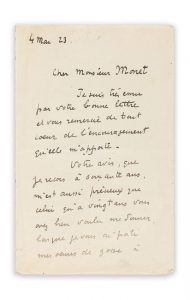 4 Mai 23.
Cher Monsieur Monet
Je suis très ému
par votre bonne lettre
et vous remercie de tout
coeur de l'encouragement
qu'elle m'apporte -
Votre avis, que
je reçois à soixante ans,
m'est aussi précieux que
celui qu'a vingt ans vous
avez bien voulu me donner
lorsque je vous ai
mes